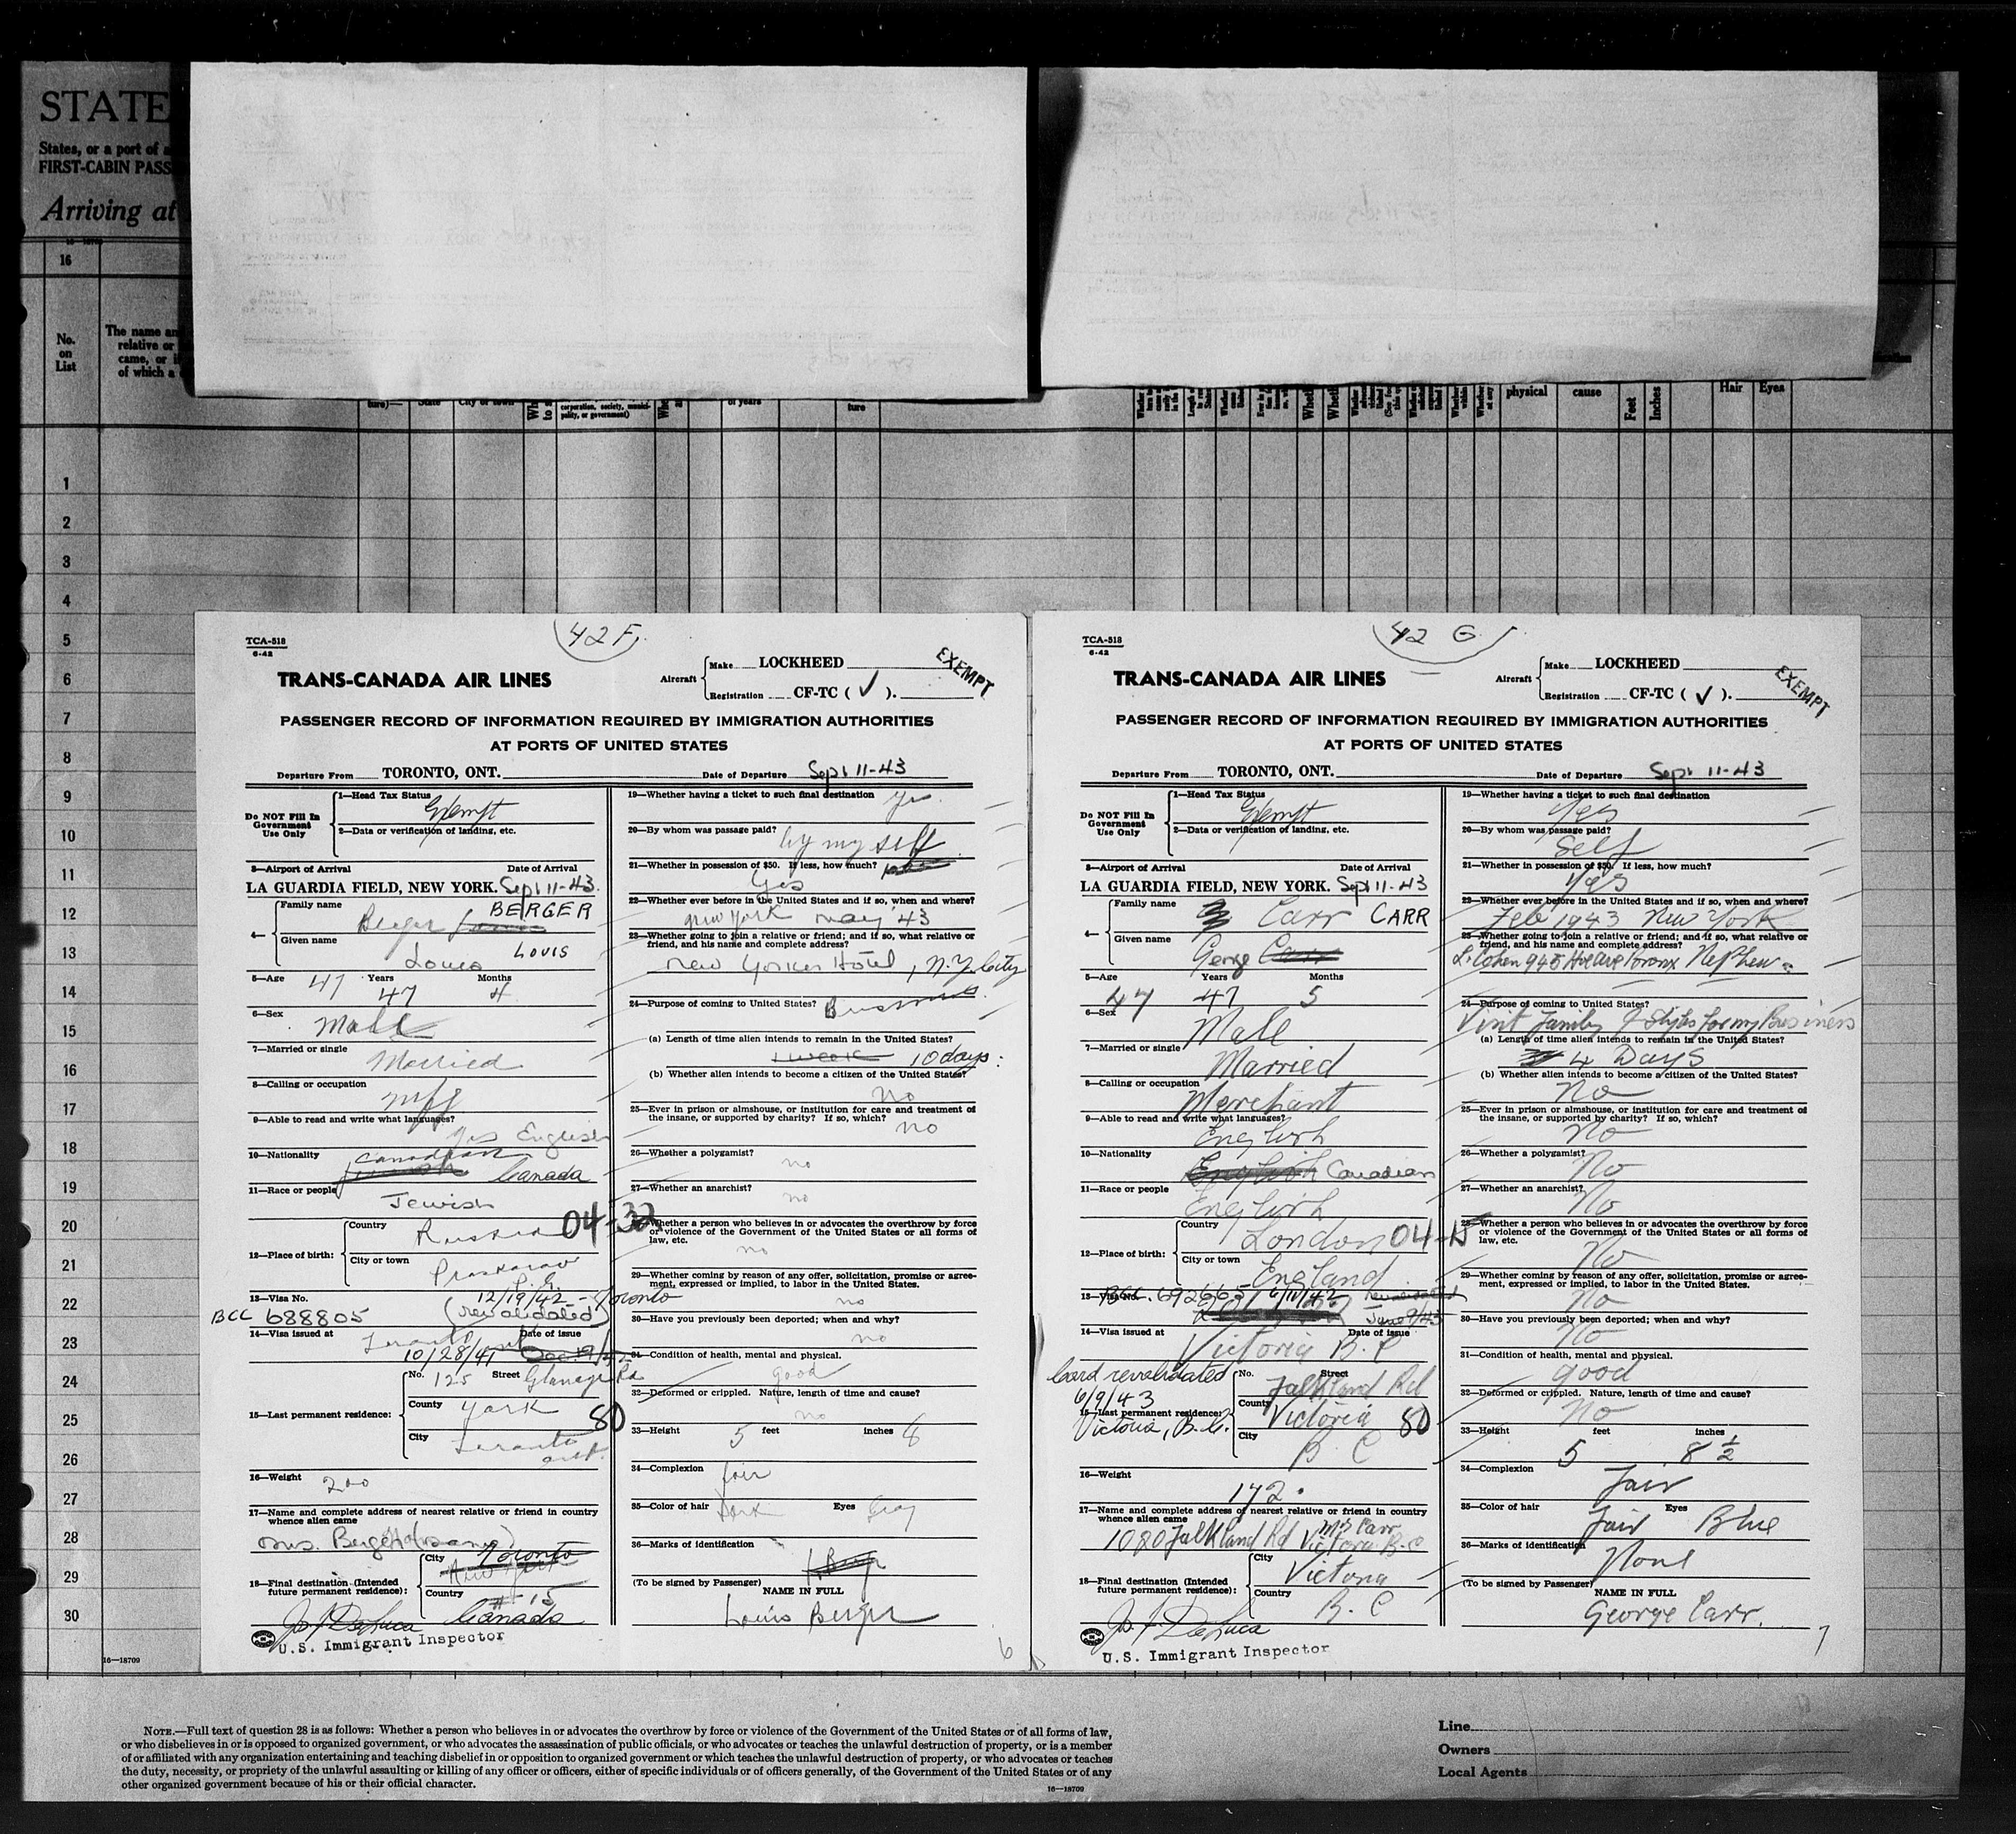 STATE
States, or a port of a
FIRST-CABIN PASS
Arriving at
16
No.
on
List
The name an
relative or
came, or i
of which a
ture)—
State
City or town
corporation, society, munici-
pality, or government)
of years
ture
physical
cause
Feet
Inches
Hair
Eyes
1
2
3
4
5
6
7
8
9
10
11
12
13
14
15
16
17
18
19
20
21
22
23
24
25
26
27
28
29
30
TCA-518
6-42
42 F
TRANS-CANADA AIR LINES
Aircraft Make LOCKHEED
Registration CF-TC ( ✓ ).
EXEMPT
PASSENGER RECORD OF INFORMATION REQUIRED BY IMMIGRATION AUTHORITIES
AT PORTS OF UNITED STATES
Departure From TORONTO, ONT. Date of Departure Sept 11-43
Do NOT Fill In
Government
Use Only
1—Head Tax Status
Exempt
2—Data or verification of landing, etc.
3—Airport of Arrival Date of Arrival
LA GUARDIA FIELD, NEW YORK. Sept 11-43.
4— Family name
Berger BERGER
Given name
Louis LOUIS
5—Age 47 Years Months
47 4
6—Sex
Male
7—Married or single
Married
8—Calling or occupation
Mfg
9—Able to read and write what languages?
Yes English
10—Nationality Canadian
Canada
11—Race or people
Jewish
12—Place of birth:
Country
Russia 04-32
City or town
Proskurov
P.E.
13—Visa No. 12/19/42 - Toronto
BCC 688805 (revalidated)
14—Visa issued at Date of issue
Toronto Ont
10/28/41 Dec. 19/42
15—Last permanent residence:
No. 125 Street Glenayr Rd
County York 80
City Toronto
Ont.
16—Weight 200
17—Name and complete address of nearest relative or friend in country
whence alien came
Mrs. Berger (same)
18—Final destination (Intended
future permanent residence):
City Toronto
New York
Country # 15
Canada
Jos J DeLuca
U.S. Immigrant Inspector
19—Whether having a ticket to such final destination yes
20—By whom was passage paid?
by myself
21—Whether in possession of $50. If less, how much?
Yes
22—Whether ever before in the United States and if so, when and where?
New York May 43
23—Whether going to join a relative or friend; and if so, what relative or
friend, and his name and complete address?
New Yorker Hotel, N.Y. City
24—Purpose of coming to United States? Business
(a) Length of time alien intends to remain in the United States?
1 week 10 days
(b) Whether alien intends to become a citizen of the United States?
No
25—Ever in prison or almshouse, or institution for care and treatment of
the insane, or supported by charity? If so, which?
no
26—Whether a polygamist?
no
27—Whether an anarchist?
no
28—Whether a person who believes in or advocates the overthrow by force
or violence of the Government of the United States or all forms of
law, etc.
no
29—Whether coming by reason of any offer, solicitation, promise or agree-
ment, expressed or implied, to labor in the United States.
no
30—Have you previously been deported; when and why?
no
31—Condition of health, mental and physical.
good
32—Deformed or crippled. Nature, length of time and cause?
no
33—Height 5 feet inches 8
34—Complexion
fair
35—Color of hair Dark Eyes Gray
36—Marks of identification
(To be signed by Passenger) NAME IN FULL
Louis Berger
6
16—18709
TCA-518
6-42
42 G
TRANS-CANADA AIR LINES
Aircraft Make LOCKHEED
Registration CF-TC ( ✓ ).
EXEMPT
PASSENGER RECORD OF INFORMATION REQUIRED BY IMMIGRATION AUTHORITIES
AT PORTS OF UNITED STATES
Departure From TORONTO, ONT. Date of Departure Sept 11-43
Do NOT Fill In
Government
Use Only
1—Head Tax Status
Exempt
2—Data or verification of landing, etc.
3—Airport of Arrival Date of Arrival
LA GUARDIA FIELD, NEW YORK. Sept 11-43
4— Family name
Carr CARR
Given name
George Carr
5—Age Years Months
47 47 5
6—Sex
Male
7—Married or single
Married
8—Calling or occupation
Merchant
9—Able to read and write what languages?
English
10—Nationality
English Canadian
11—Race or people
English
12—Place of birth:
Country
London 04-15
City or town
England
13—Visa No. BCC. 692665 6/11/42 Revalidated
June 9/43
14—Visa issued at Date of issue
Victoria B.C
Card revalidated
6/9/43
Victoria, B.C.
15—Last permanent residence:
No. Street
Falkland Rd
County Victoria 80
City
B.C
16—Weight
142.
17—Name and complete address of nearest relative or friend in country
whence alien came Mrs Carr
1020 Falkland Rd Victoria B.C
18—Final destination (Intended
future permanent residence):
City
Victoria
Country
B.C
Jos J DeLuca
U.S. Immigrant Inspector
19—Whether having a ticket to such final destination
Yes
20—By whom was passage paid?
Self
21—Whether in possession of $50. If less, how much?
Yes
22—Whether ever before in the United States and if so, when and where?
Feb 1943 New York
23—Whether going to join a relative or friend; and if so, what relative or
friend, and his name and complete address?
L. Cohen 945 Hoe Ave Bronx Nephew
24—Purpose of coming to United States?
Visit Family & Styles for my Business
(a) Length of time alien intends to remain in the United States?
4 Days
(b) Whether alien intends to become a citizen of the United States?
No
25—Ever in prison or almshouse, or institution for care and treatment of
the insane, or supported by charity? If so, which?
No
26—Whether a polygamist?
No
27—Whether an anarchist?
No
28—Whether a person who believes in or advocates the overthrow by force
or violence of the Government of the United States or all forms of
law, etc.
No
29—Whether coming by reason of any offer, solicitation, promise or agree-
ment, expressed or implied, to labor in the United States.
No
30—Have you previously been deported; when and why?
No
31—Condition of health, mental and physical.
good
32—Deformed or crippled. Nature, length of time and cause?
No
33—Height feet inches
5 8 ½
34—Complexion
Fair
35—Color of hair Eyes
Fair Blue
36—Marks of identification
None
(To be signed by Passenger) NAME IN FULL
George Carr.
7
NOTE.—Full text of question 28 is as follows: Whether a person who believes in or advocates the overthrow by force or violence of the Government of the United States or of all forms of law,
or who disbelieves in or is opposed to organized government, or who advocates the assassination of public officials, or who advocates or teaches the unlawful destruction of property, or is a member
of or affiliated with any organization entertaining and teaching disbelief in or opposition to organized government or which teaches the unlawful destruction of property, or who advocates or teaches
the duty, necessity, or propriety of the unlawful assaulting or killing of any officer or officers, either of specific individuals or of officers generally, of the Government of the United States or of any
other organized government because of his or their official character.
16—18709
Line
Owners
Local Agents